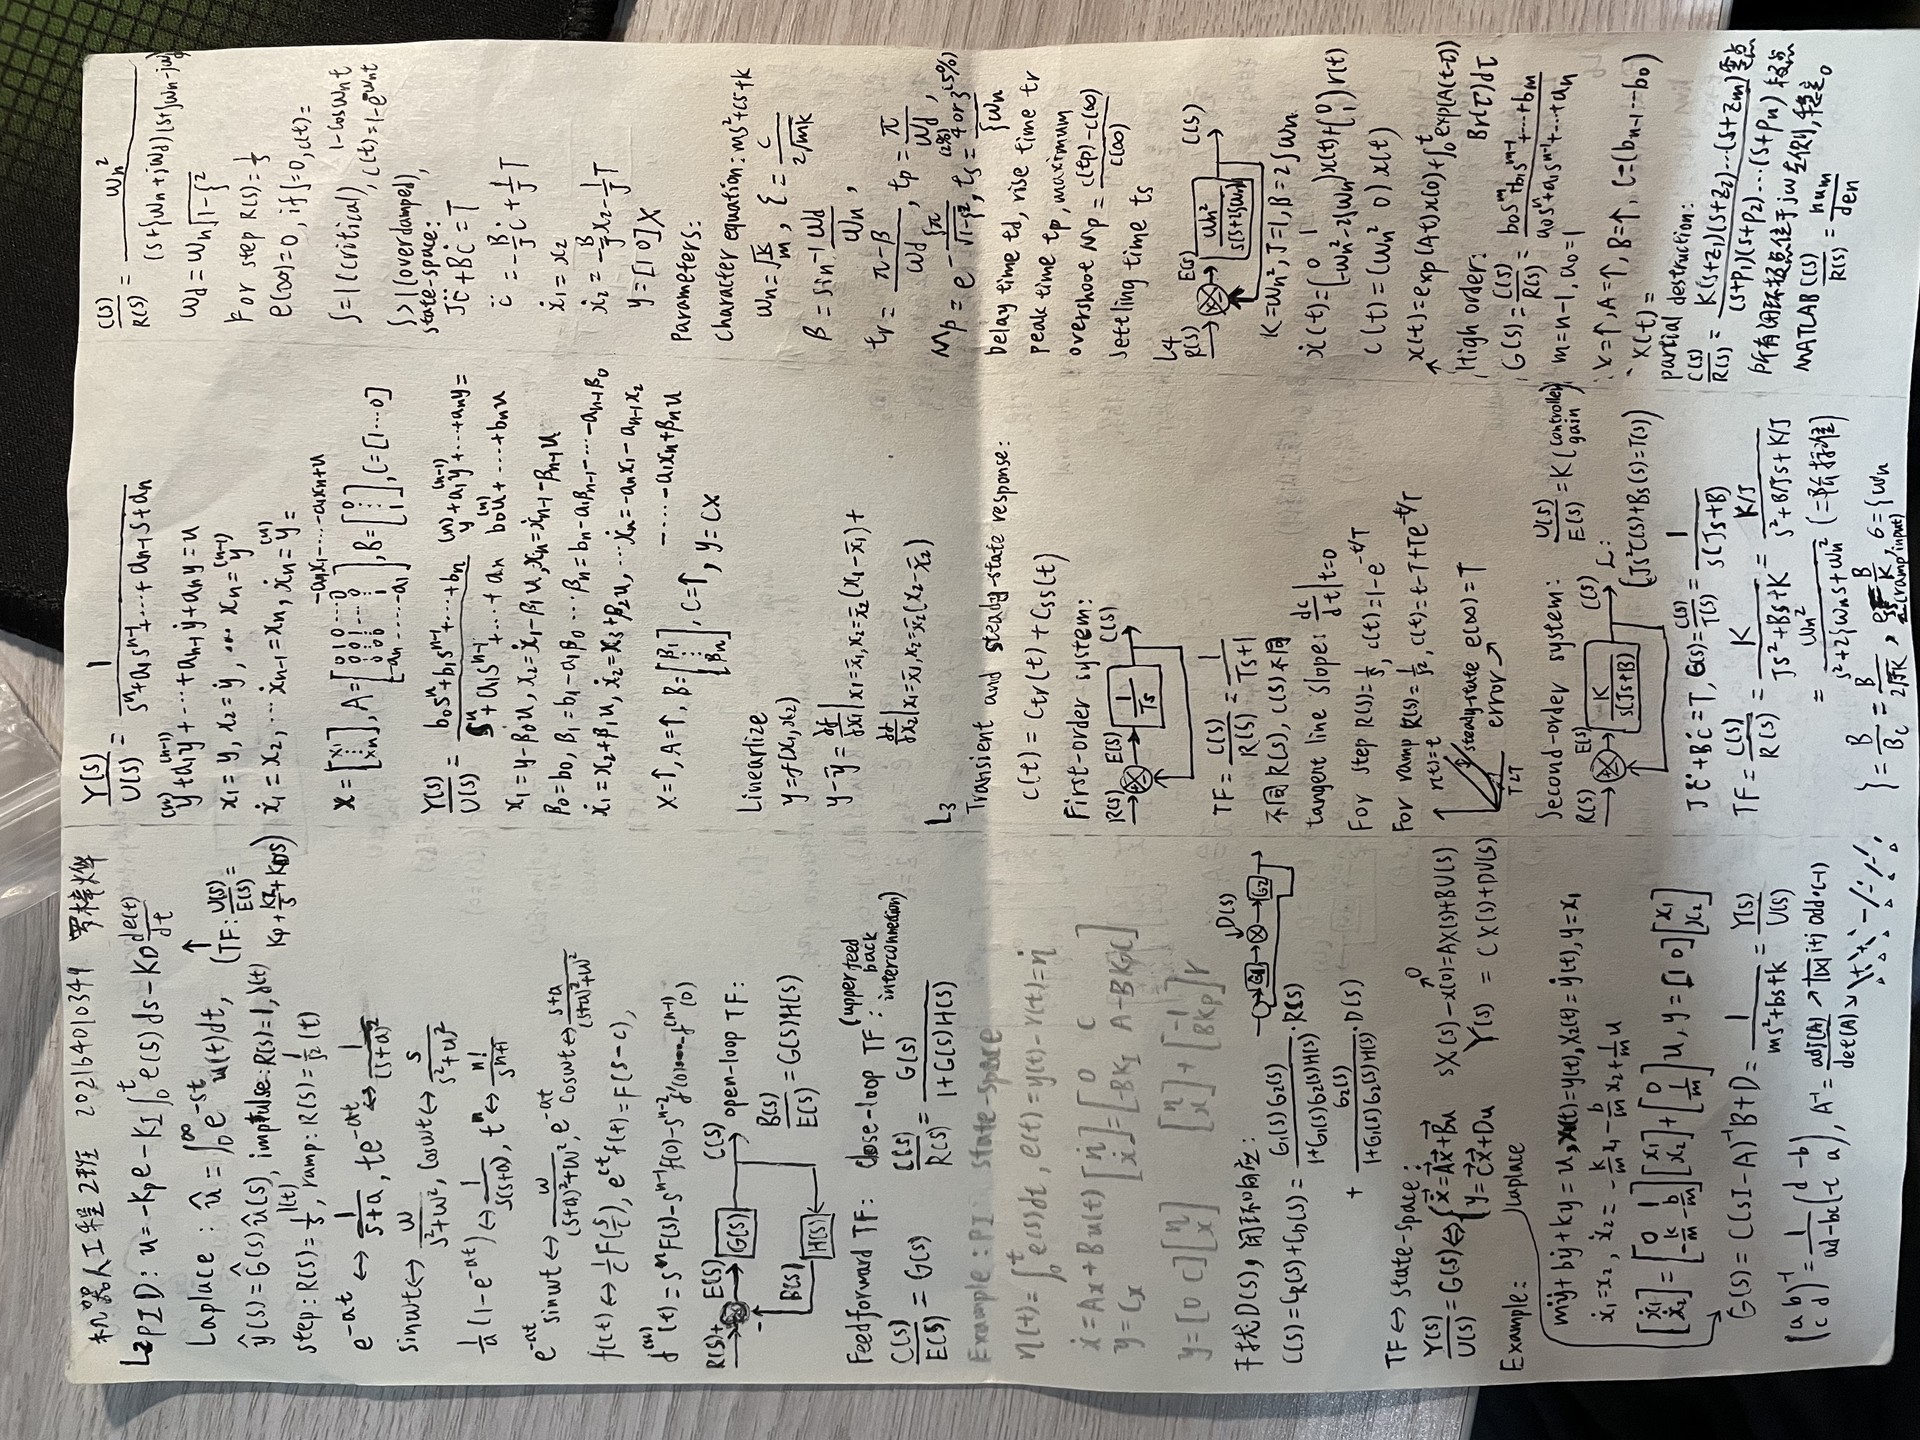 机器人工程2班 202164010349 罗梓烨
L2 PID: u=-Kpe-KI∫₀ᵗe(s)ds-KD de(t)/dt
Laplace: û=∫₀^∞ e^-st u(t)dt, ↑(TF: U(s)/E(s)=
ŷ(s)=Ĝ(s)û(s), impulse: R(s)=1, δ(t) Kp+KI/s+KDs)
step: R(s)=1/s 1(t), ramp: R(s)=1/s² (t)
e^-at ↔ 1/(s+a), te^-at ↔ 1/(s+a)²
sinwt ↔ w/(s²+w²), coswt ↔ s/(s²+w²)
1/a(1-e^-at) ↔ 1/(s(s+a)), t^n ↔ n!/s^(n+1)
e^-at sinwt ↔ w/((s+a)²+w²), e^-at coswt ↔ (s+a)/((s+a)²+w²)
f(ct) ↔ 1/c F(s/c), e^ct f(t)=F(s-c),
f^(n)(t)=s^n F(s)-s^(n-1)f(0)-s^(n-2)f'(0)....-f^(n-1)(0)
R(s) + - E(s) G(s) C(s) open-loop TF:
B(s) H(s) B(s)/E(s)=G(s)H(s)
Feedforward TF: close-loop TF: (upper feed back interconnection)
C(s)/E(s)=G(s) C(s)/R(s)=G(s)/(1+G(s)H(s))
Example: PI state-space
η(t)=∫₀ᵗe(s)dt, e(t)=y(t)-r(t)=η̇
ẋ=Ax+Bu(t) [η̇ ẋ]=[0 C; -BKI A-BKpC]
y=Cx
y=[0 C][η x] [η x]+[-1 BKp]r
干扰D(s), 闭环响应: D(s) G1 G2
C(s)=CR(s)+CD(s)=G1(s)G2(s)/(1+G1(s)G2(s)H(s))·R(s)
+G2(s)/(1+G1(s)G2(s)H(s))·D(s)
TF↔state-space:
Y(s)/U(s)=G(s)⇔{ẋ=Ax+Bu sX(s)-x(0)=AX(s)+BU(s) ↗0
y=Cx+Du Y(s)=CX(s)+DU(s)
Example: Laplace
mÿ+bẏ+ky=u, x1(t)=y(t), x2(t)=ẏ(t), y=x1
ẋ1=x2, ẋ2=-k/m x1-b/m x2+1/m u
[ẋ1 ẋ2]=[0 1; -k/m -b/m][x1 x2]+[0 1/m]u, y=[1 0][x1 x2]
G(s)=C(sI-A)⁻¹B+D=1/(ms²+bs+k)=Y(s)/U(s)
(a b; c d)⁻¹=1/(ad-bc)(d -b; -c a), A⁻¹=adj(A)/det(A) i+j odd·(-1)
Y(s)/U(s)=1/(s^n+a1s^(n-1)+...+an-1s+an)
y^(n)+a1y^(n-1)+...+an-1ẏ+any=u
x1=y, x2=ẏ, ... xn=y^(n-1)
ẋ1=x2, ...ẋn-1=xn, ẋn=y^(n)=
-anx1-...-a1xn+u
X=[x1 ⋮ xn], A=[0 1 0 ... 0; 0 0 1 ... 0; 0 0 0 1; -an ...... -a1], B=[0 ⋮ 1], C=[1...0]
Y(s)/U(s)=(b0s^n+b1s^(n-1)+...+bn)/(s^n+a1s^(n-1)+...+an) y^(n)+a1y^(n-1)+...+any=
b0u^(n)+...+bnu
x1=y-β0u, x2=ẋ1-β1u, xn=ẋn-1-βn-1u
β0=b0, β1=b1-a1β0 ...βn=bn-a1βn-1-...-an-1β0
ẋ1=x2+β1u, ẋ2=x3+β2u, ...ẋn=-anx1-an-1x2
-...-a1xn+βnu
X=↑, A=↑, B=[β1 ⋮ βn], C=↑, y=CX
Linearlize
y=f(x1,x2)
y-ȳ=∂f/∂x1|x1=x̄1,x2=x̄2(x1-x̄1)+
∂f/∂x2|x1=x̄1,x2=x̄2(x2-x̄2)
L3
Transient and steady-state response:
c(t)=Ctr(t)+Css(t)
First-order system:
R(s) + - E(s) 1/Ts C(s)
TF=C(s)/R(s)=1/(Ts+1)
不同R(s), C(s)不同
tangent line slope: dc/dt|t=0
For step R(s)=1/s, c(t)=1-e^-t/T
For ramp R(s)=1/s², c(t)=t-T+Te^-t/T
r(t)=t
steady-state error ↗ e(∞)=T
T 2T
Second-order system: U(s)/E(s)=K (controller gain)
R(s) + - E(s) K/(s(Js+B)) C(s) L:
(Js²C(s)+Bs(s)=T(s))
Jc̈+Bċ=T, G(s)=C(s)/T(s)=1/(s(Js+B))
TF=C(s)/R(s)=K/(Js²+Bs+K)=(K/J)/(s²+B/Js+K/J)
=ωn²/(s²+2ζωns+ωn²) (二阶标准)
ζ=B/Bc=B/(2√JK), ess=B/K (ramp input), σ=ζωn
C(s)/R(s)=ωn²/((s+ζωn+jωd)(s+ζωn-jωd))
ωd=ωn√(1-ζ²)
For step R(s)=1/s
e(∞)=0, if ζ=0, c(t)=
1-cosωnt
ζ=1(critical), c(t)=1-e^-ωnt
ζ>1(overdamped),
state-space:
Jc̈+Bċ=T
c̈=-B/J ċ+1/J T
ẋ1=x2
ẋ2=-B/J x2-1/J T
y=[1 0]X
Parameters:
Character equation: ms²+cs+k
ωn=√(k/m), ξ=c/(2√mk)
β=sin⁻¹ ωd/ωn,
tr=(π-β)/ωd, tp=π/ωd,
Mp=e^(-ζπ/√(1-ζ²)), ts=(2%)4 or 3(5%)/ζωn
Delay time td, rise time tr
peak time tp, maximum
overshoot Mp=(c(tp)-c(∞))/c(∞)
settling time ts
L4
R(s) + - E(s) ωn²/(s(s+2ζωn)) C(s)
K=ωn², J=1, B=2ζωn
ẋ(t)=(0 1; -ωn² -2ζωn)x(t)+(0 1)r(t)
c(t)=(ωn² 0)x(t)
x(t)=exp(At)x(0)+∫₀ᵗexp(A(t-τ))
Br(τ)dτ
High order:
G(s)=C(s)/R(s)=(b0s^m+b1s^(m-1)+...+bm)/(a0s^n+a1s^(n-1)+...+an)
m=n-1, a0=1
X=↑, A=↑, B=↑, C=(bn-1...b0)
X(t)=
partial destruction:
C(s)/R(s)=K(s+z1)(s+z2)...(s+zm)零点/(s+p1)(s+p2)...(s+pn)极点
所有闭环极点位于jw左侧,稳定。
MATLAB C(s)/R(s)=num/den